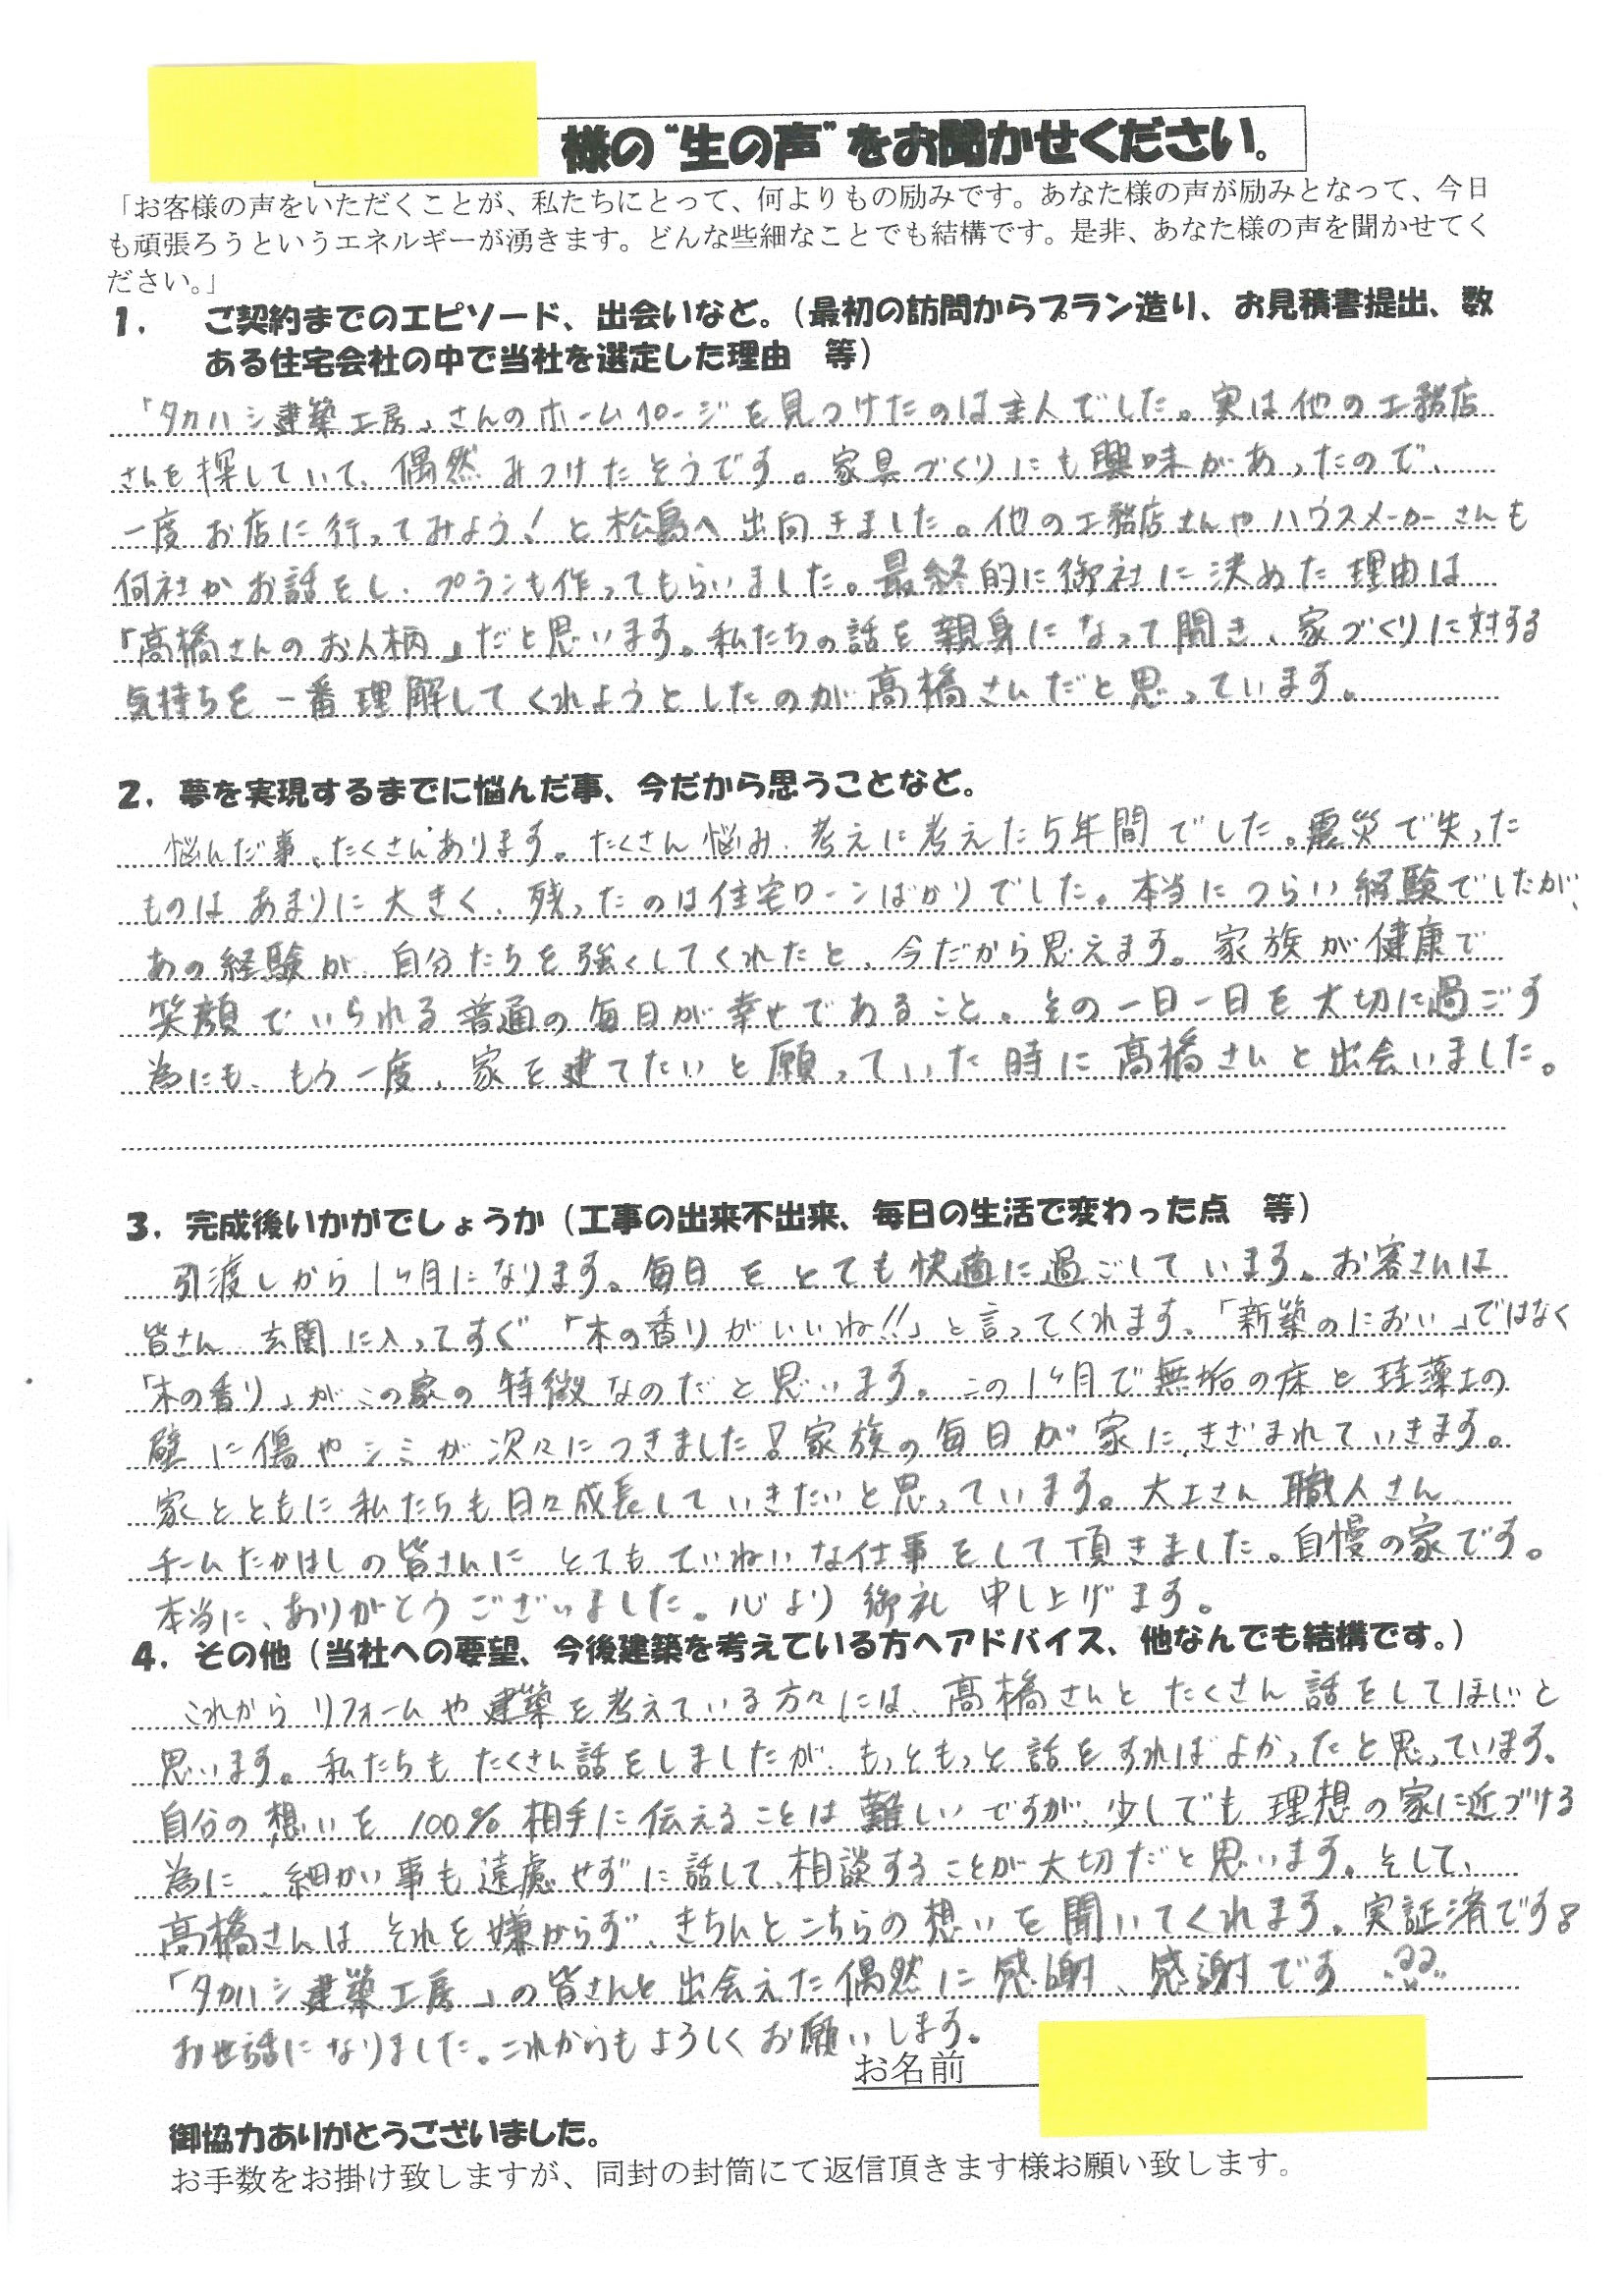 様の“生の声”をお聞かせください。
「お客様の声をいただくことが、私たちにとって、何よりもの励みです。あなた様の声が励みとなって、今日
も頑張ろうというエネルギーが湧きます。どんな些細なことでも結構です。是非、あなた様の声を聞かせてく
ださい。」
1. ご契約までのエピソード、出会いなど。（最初の訪問からプラン造り、お見積書提出、数
ある住宅会社の中で当社を選定した理由 等）
「タカハシ建築工房」さんのホームページを見つけたのは主人でした。実は他の工務店
さんを探していて、偶然みつけたそうです。家具づくりにも興味があったので、
一度お店に行ってみよう！と松島へ出向きました。他の工務店さんやハウスメーカーさんも
何社かお話をし、プランも作ってもらいました。最終的に御社に決めた理由は
「高橋さんのお人柄」だと思います。私たちの話を親身になって聞き、家づくりに対する
気持ちを一番理解してくれようとしたのが高橋さんだと思っています。
2. 夢を実現するまでに悩んだ事、今だから思うことなど。
悩んだ事、たくさんあります。たくさん悩み、考えに考えた5年間でした。震災で失った
ものはあまりに大きく、残ったのは住宅ローンばかりでした。本当につらい経験でしたが、
あの経験が、自分たちを強くしてくれたと、今だから思えます。家族が健康で
笑顔でいられる普通の毎日が幸せであること。その一日一日を大切に過ごす
為にも、もう一度、家を建てたいと願っていた時に高橋さんと出会いました。
3. 完成後いかがでしょうか（工事の出来不出来、毎日の生活で変わった点 等）
引渡しから1ヶ月になります。毎日をとても快適に過ごしています。お客さんは
皆さん、玄関に入ってすぐ「木の香りがいいね!!」と言ってくれます。「新築のにおい」ではなく
「木の香り」がこの家の特徴なのだと思います。この1ヶ月で無垢の床と珪藻土の
壁に傷やシミが次々につきました！家族の毎日が家にきざまれていきます。
家とともに私たちも日々成長していきたいと思っています。大工さん、職人さん、
チームたかはしの皆さんにとてもていねいな仕事をして頂きました。自慢の家です。
本当に、ありがとうございました。心より御礼申し上げます。
4. その他（当社への要望、今後建築を考えている方へアドバイス、他なんでも結構です。）
これからリフォームや建築を考えている方々には、高橋さんとたくさん話をしてほしいと
思います。私たちもたくさん話をしましたが、もっともっと話をすればよかったと思っています。
自分の想いを100%相手に伝えることは難しいですが、少しでも理想の家に近づける
為に、細かい事も遠慮せずに話して、相談することが大切だと思います。そして、
高橋さんはそれを嫌がらず、きちんとこちらの想いを聞いてくれます。実証済です！
「タカハシ建築工房」の皆さんと出会えた偶然に感謝、感謝です
お世話になりました。これからもよろしくお願いします。
お名前
御協力ありがとうございました。
お手数をお掛け致しますが、同封の封筒にて返信頂きます様お願い致します。